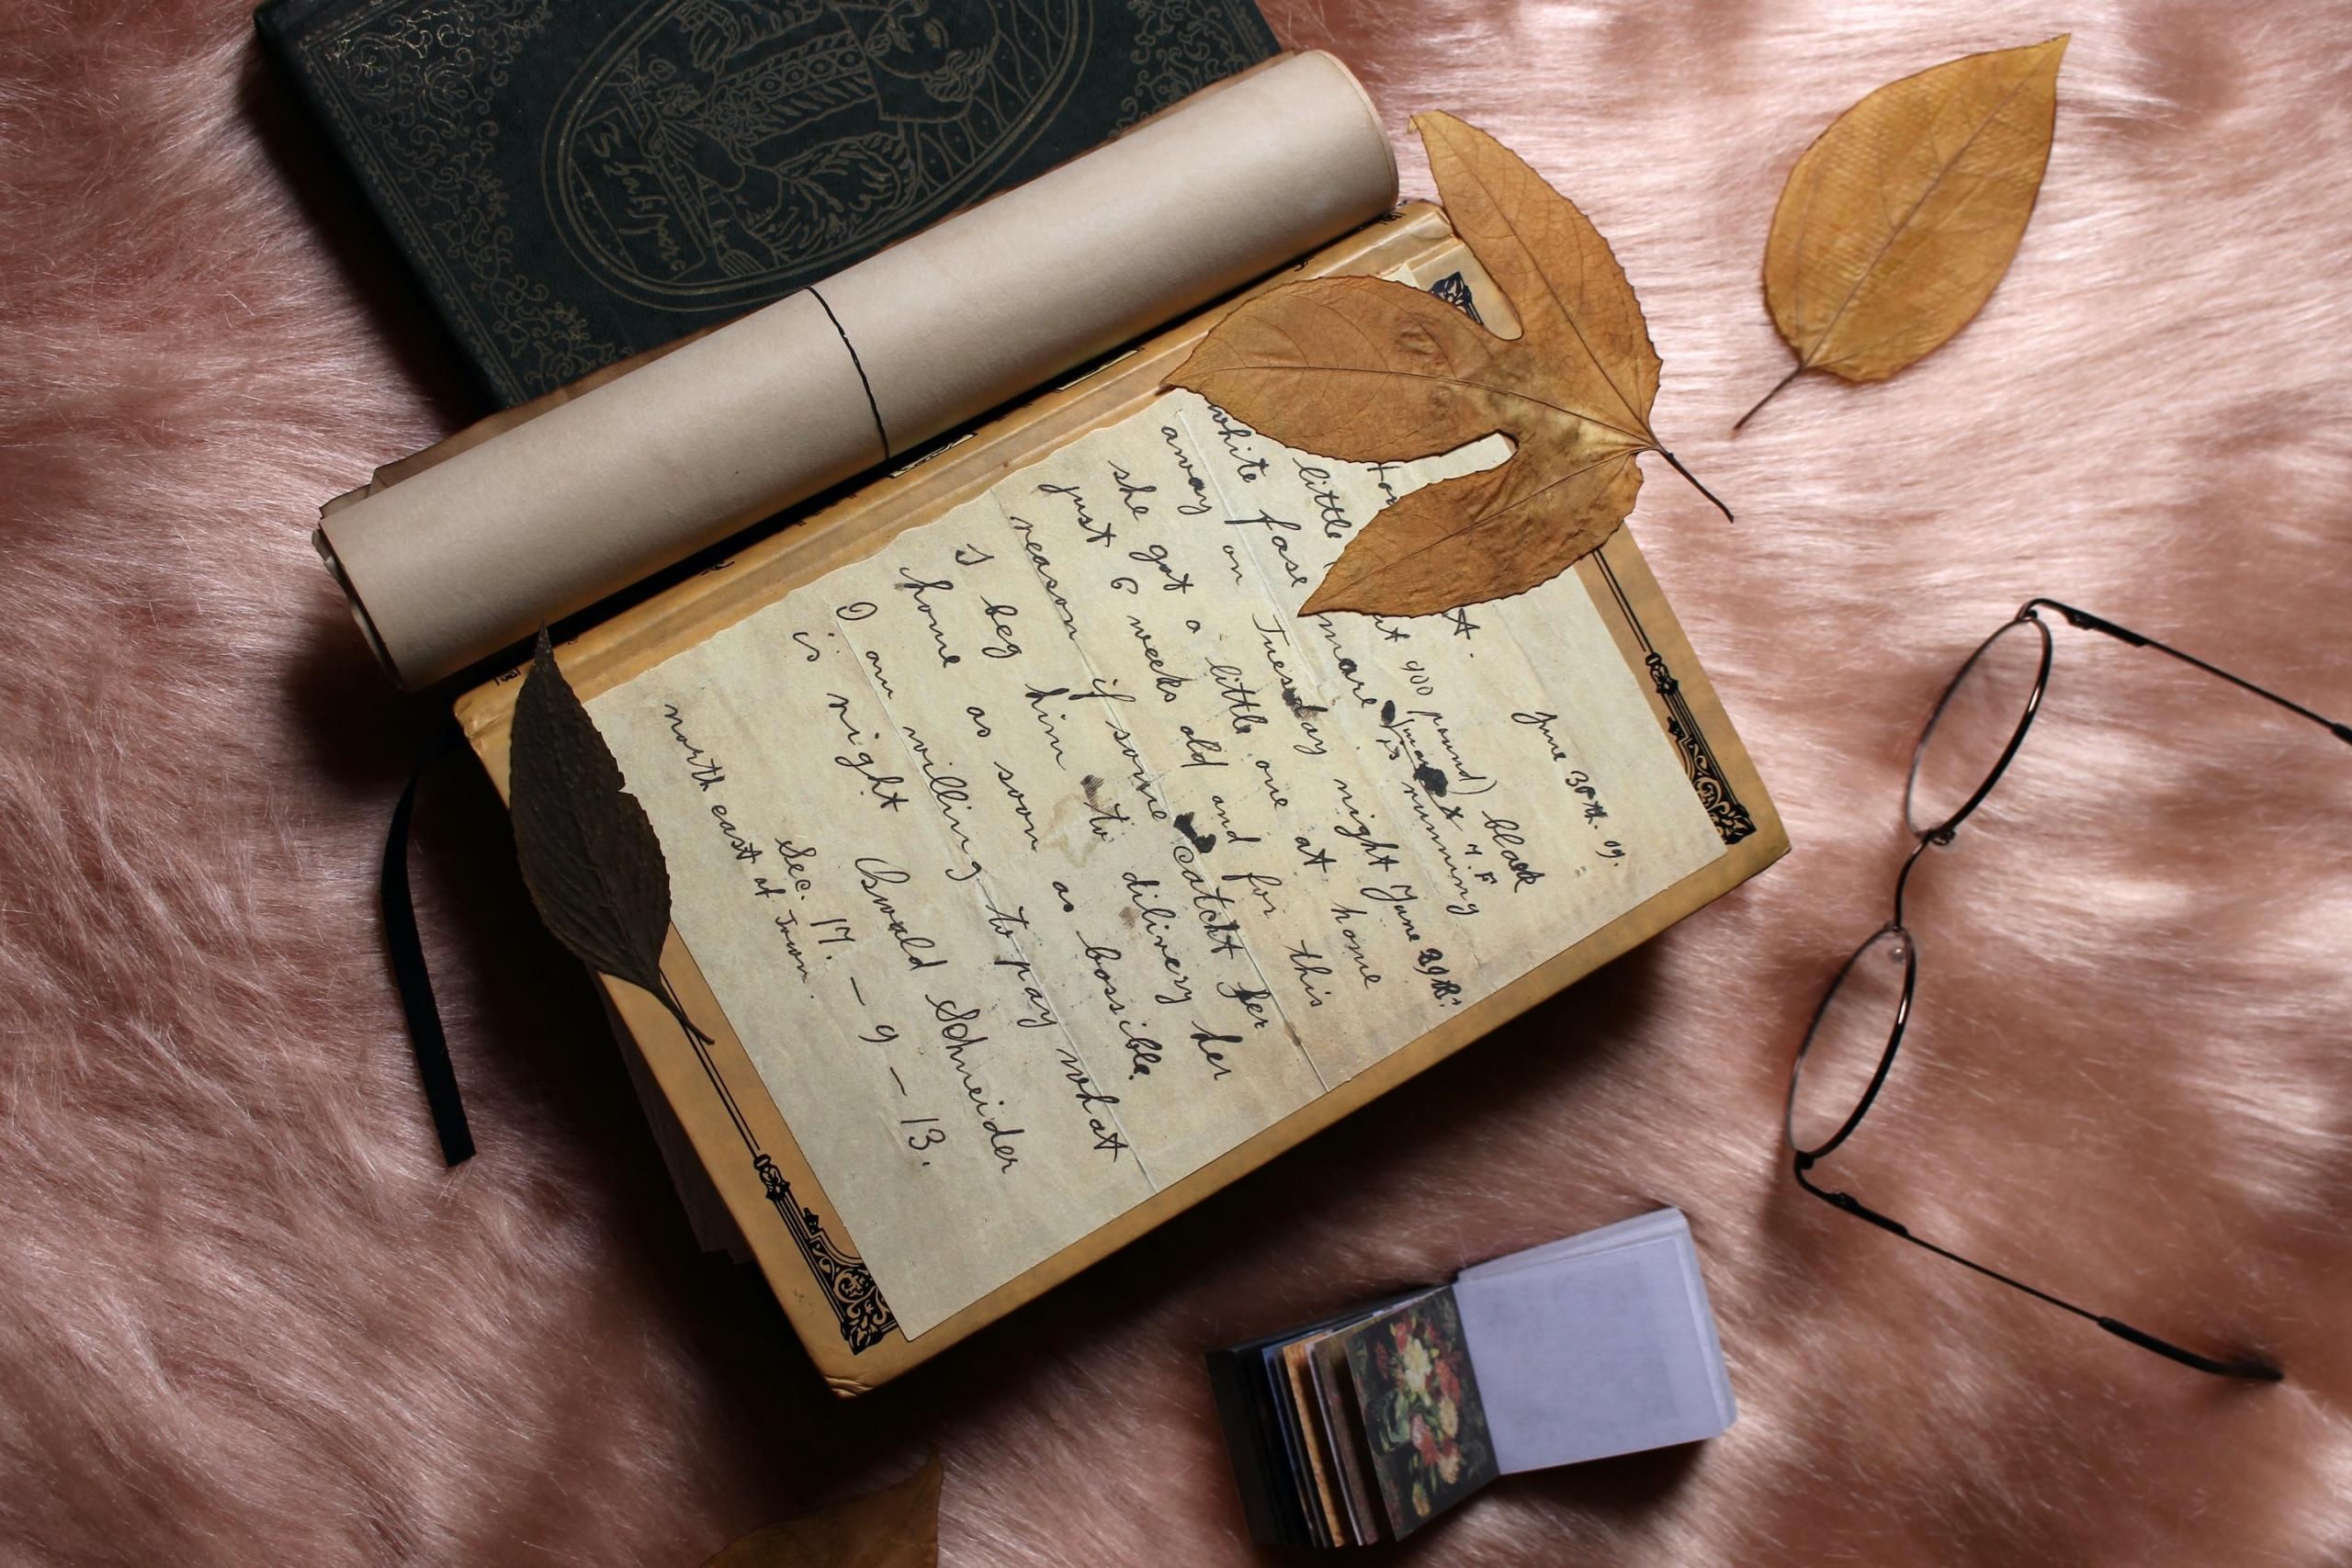 June 30th. 09.
little at 900 pound) black
white fase mare is running
away on Tuesday night June 29th.
she got a little one at home
just 6 weeks old and for this
reason if some catcht her
I beg him to dilivery her
home as soon as bossible.
I am willing to pay what
is right Oswald Schneider
Sec. 17. – 9 – 13.
north east of Town.